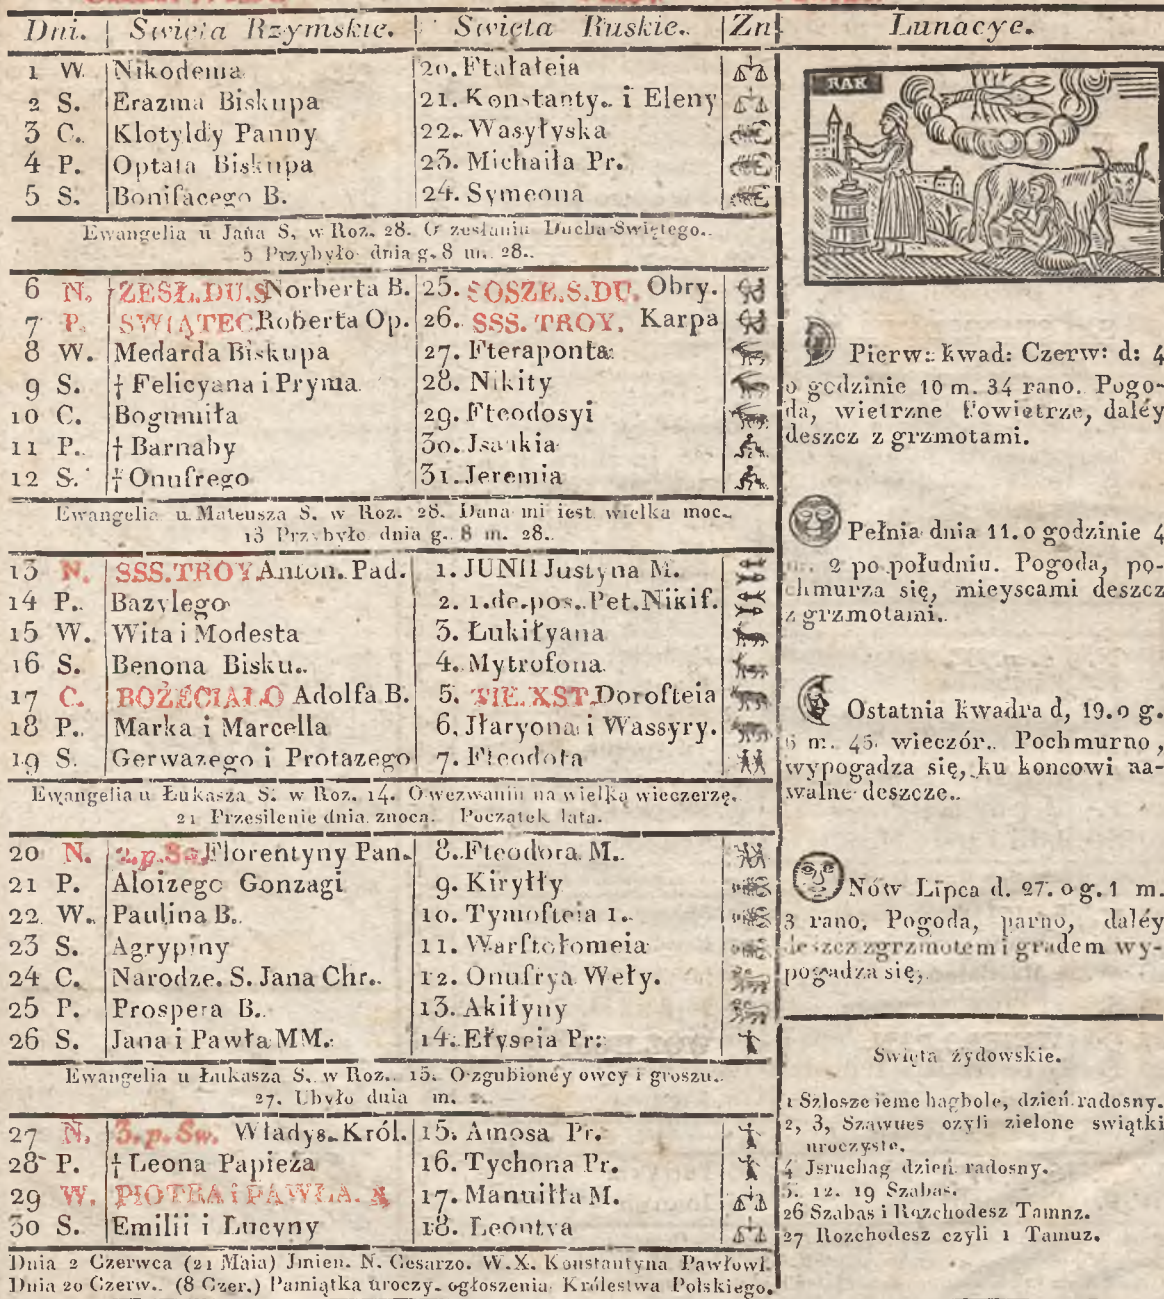 Dni. Swięta Rzymskie. Swięta Ruskie. Zn
1 W. Nikodema 20. Ftałałeia
2 S. Erazma Biskupa 21. Konstanty. i Eleny
3 C. Klotyldy Panny 22. Wasyłyska
4 P. Optata Biskupa 23. Michaiła Pr.
5 S. Bonifacego B. 24. Symeona
Ewangelia u Jana S, w Roz. 28. O zesłaniu Ducha Swiętego.
5 Przybyło dnia g. 8 m. 28.
6 N. ZESŁ.DU.S Norberta B. 25. SOSZE.S.DU. Obry.
7 P. SWIĄTEC Roberta Op. 26. SSS. TROY. Karpa
8 W. Medarda Biskupa 27. Fteraponta
9 S. † Felicyana i Pryma 28. Nikity
10 C. Bogumiła 29. Fteodosyi
11 P. † Barnaby 30. Jsaakia
12 S. † Onufrego 31. Jeremia
Ewangelia u Mateusza S. w Roz. 28. Dana mi iest wielka moc.
13 Przybyło dnia g. 8 m. 28.
13 N. SSS.TROY Anton. Pad. 1. JUNII Justyna M.
14 P. Bazylego 2. 1.de.pos. Pet. Nikif.
15 W. Wita i Modesta 3. Łukiłyana
16 S. Benona Bisku. 4. Mytrofona
17 C. BOŻECIAŁO Adolfa B. 5. TIE.XST. Dorofteia
18 P. Marka i Marcella 6. Jłaryona i Wassyry.
19 S. Gerwazego i Protazego 7. Fteodota
Ewangelia u Łukasza S. w Roz. 14. O wezwaniu na wielką wieczerzę.
21 Przesilenie dnia z noca. Początek lata.
20 N. 2.p.Sw. Florentyny Pan. 8. Fteodora M.
21 P. Aloizego Gonzagi 9. Kiryłły
22 W. Paulina B. 10. Tymofteia 1.
23 S. Agrypiny 11. Warftołomeia
24 C. Narodze. S. Jana Chr. 12. Onufrya Weły.
25 P. Prospera B. 13. Akiłyny
26 S. Jana i Pawła MM. 14. Ełyseia Pr:
Ewangelia u Łukasza S. w Roz. 15. O zgubioney owcy i groszu.
27. Ubyło dnia m.
27 N. 3. p. Sw. Władys. Król. 15. Amosa Pr.
28 P. † Leona Papieża 16. Tychona Pr.
29 W. PIOTRA i PAWŁA. 17. Manuiłła M.
30 S. Emilii i Lucyny 18. Leontya
Dnia 2 Czerwca (21 Maia) Jmien. N. Cesarzo. W.X. Konstantyna Pawłowi.
Dnia 20 Czerw. (8 Czer.) Pamiątka uroczy. ogłoszenia Królestwa Polskiego.
Lunacye.
RAK
Pierw: kwad: Czerw: d: 4
o godzinie 10 m. 34 rano. Pogo-
da, wietrzne Powietrze, daléy
deszcz z grzmotami.
Pełnia dnia 11. o godzinie 4
m. 2 po południu. Pogoda, po-
chmurza się, mieyscami deszcz
z grzmotami.
Ostatnia kwadra d, 19. o g.
m. 45 wieczór. Pochmurno,
wypogadza się, ku koncowi na-
walne deszcze.
Nów Lipca d. 27. o g. 1 m.
3 rano. Pogoda, parno, daléy
deszcz z grzmotem i gradem wy-
pogadza się,
Swięta żydowskie.
1 Szlosze ieme hagbole, dzień radosny.
2, 3, Szawues czyli zielone swiątki
uroczyste.
4 Jsruchag dzień radosny.
5. 12. 19 Szabas.
26 Szabas i Rozchodesz Tamnz.
27 Rozchodesz czyli 1 Tamuz.